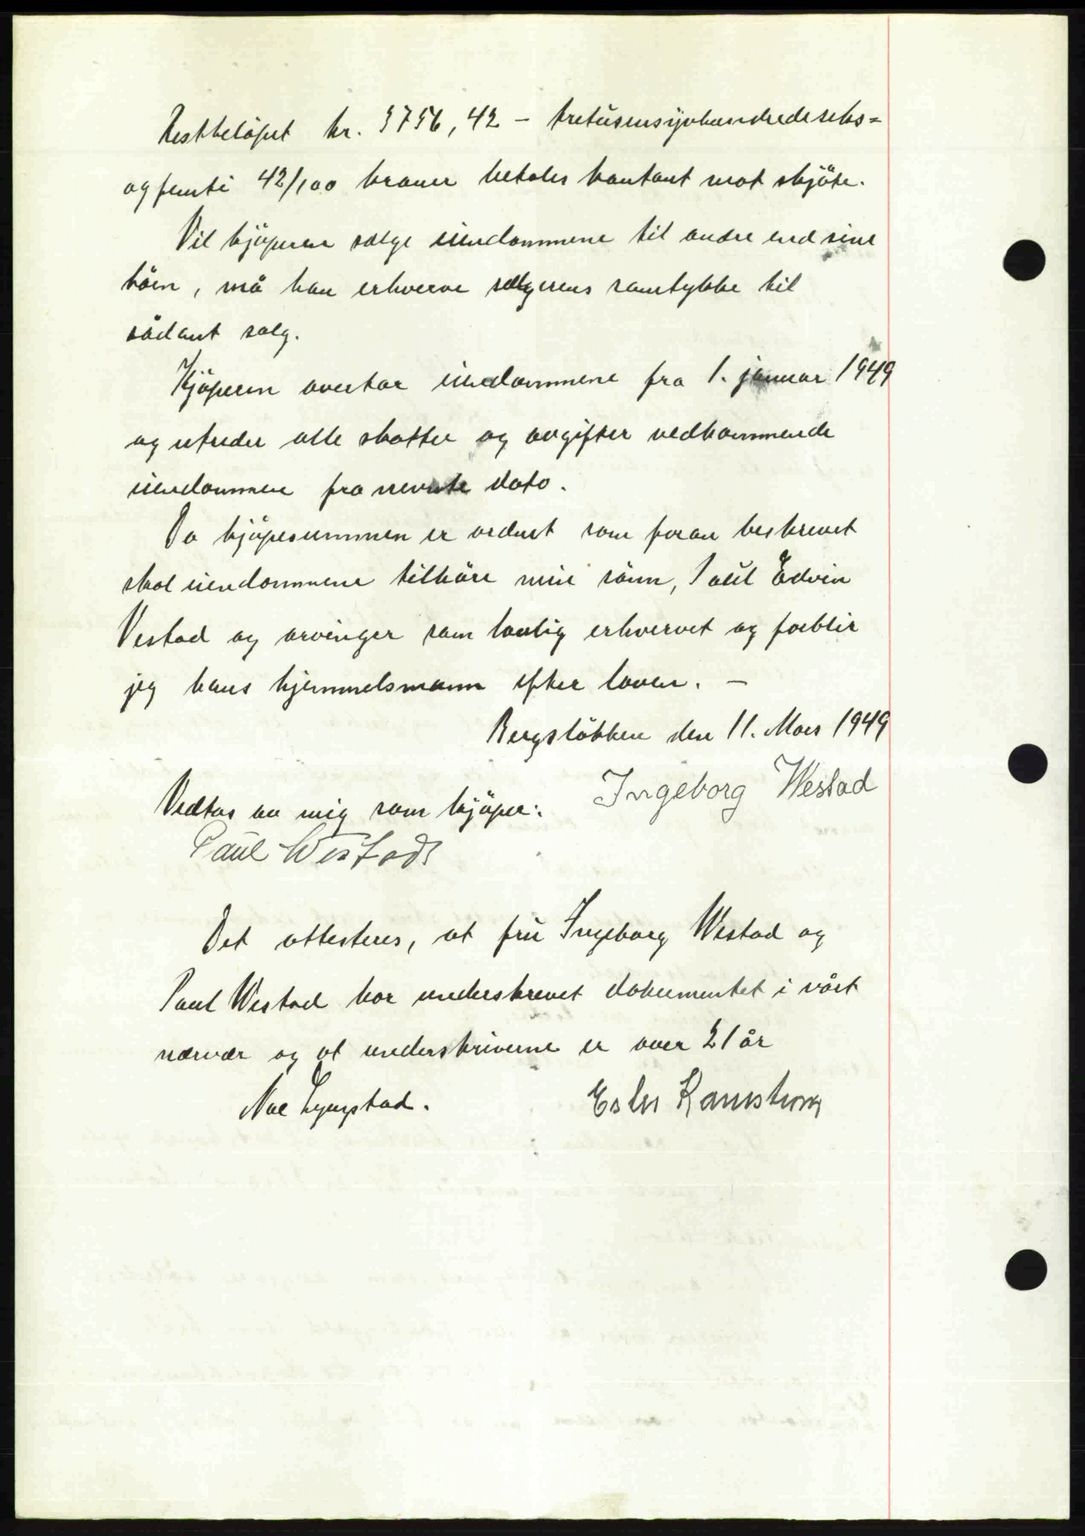 Restbelöpet kr. 3756,42 – tretusensjvhundredeseks=
og femti 42/100 kroner betales kontant mot skjöte.
Vil kjöperen selge eiendommene til andre end sine
börn, må han erhverve selgerens samtykke til
sådant salg.
Kjöperen overtar eiendommene fra 1. januar 1949
og utreder alle skatter og avgifter vedkommende
eiendommene fra nevnte dato.
Da kjöpesummen er ordnet som foran beskrevet
skal eiendommene tilhöre min sönn, Paul Edvin
Vestad og arvinger som lovlig erhvervet og forblir
jeg hans hjemmelsmann efter loven. –
Bergslökken den 11. Mars 1949
Ingeborg Westad
Vedtas av mig som kjöper:
Paul Westad
Det attesteres, at frü Ingeborg Westad og
Paul Westad har underskrevet dokumentet i vårt
nærvær og at underskriverne er over 21 år